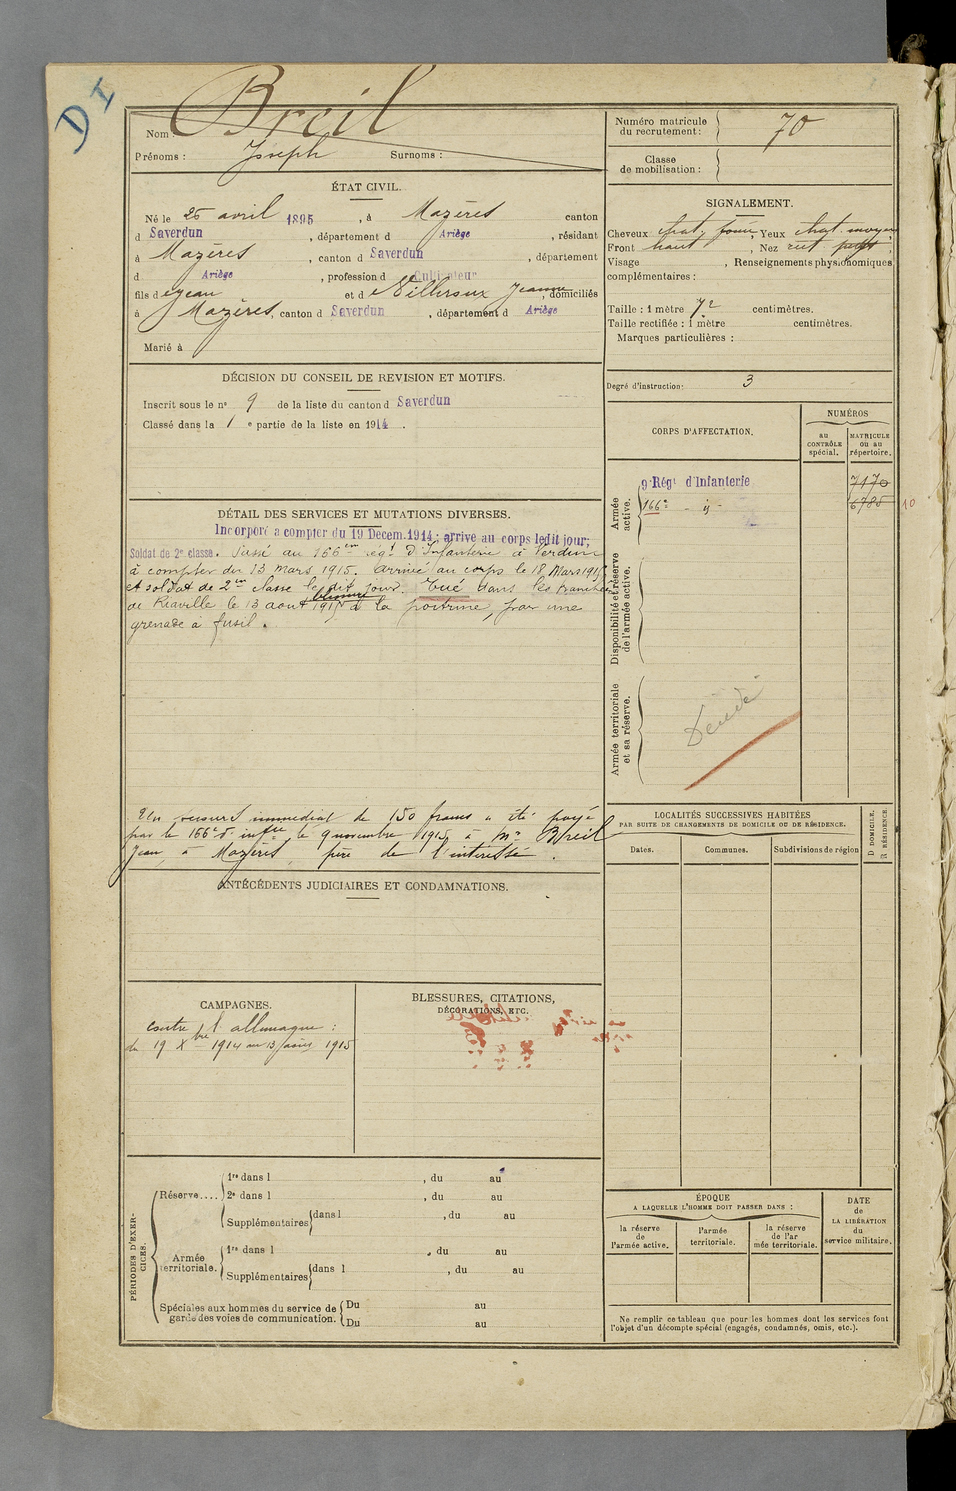 DI
Nom : Breil
Prénoms : Joseph Surnoms :
ÉTAT CIVIL.
Né le 25 avril 1895, à Mazères canton
d Saverdun, département d Ariège, résidant
à Mazères, canton d Saverdun, département
d Ariège, profession d Cultivateur
fils d Jean et d Jeanne, domiciliés
à Mazères, canton d Saverdun, département d Ariège
Marié à
DÉCISION DU CONSEIL DE REVISION ET MOTIFS.
Inscrit sous le n° 9 de la liste du canton d Saverdun
Classé dans la 1e partie de la liste en 1914.
DÉTAIL DES SERVICES ET MUTATIONS DIVERSES.
Incorporé a compter du 19 Decem. 1914; arrive au corps ledit jour;
Soldat de 2e classe. Passé au 166em régt d'Infanterie à Verdun
à compter du 13 mars 1915. Arrivé au corps le 18 Mars 1915
et soldat de 2em classe le dit jour. Tué dans les tranchées
blessure
de Riaville le 13 aout 1915 à la poitrine, par une
grenade à fusil.
Un secours immédiat de 150 francs a été payé
par le 166e d'infie le 9 novembre 1915 à Mr Breil
Jean, à Mazères, père de l'intéressé.
ANTÉCÉDENTS JUDICIAIRES ET CONDAMNATIONS.
CAMPAGNES.
Contre l'allemagne :
du 19 Xbre 1914 au 13 1915
BLESSURES, CITATIONS,
DÉCORATIONS, ETC.
PÉRIODES D'EXERCICES.
Réserve....
1re dans l , du au
2e dans l , du au
Supplémentaires dans l , du au
Armée territoriale.
1re dans l , du au
Supplémentaires dans l , du au
Spéciales aux hommes du service de garde des voies de communication.
Du au
Du au
Numéro matricule du recrutement : 70
Classe de mobilisation :
SIGNALEMENT.
Cheveux chat. foncé, Yeux chat. moyen
Front haut, Nez rect.
Visage , Renseignements physionomiques
complémentaires :
Taille : 1 mètre 72 centimètres.
Taille rectifiée : 1 mètre centimètres.
Marques particulières :
Degré d'instruction: 3
CORPS D'AFFECTATION.
NUMÉROS
au CONTRÔLE spécial.
MATRICULE ou au répertoire.
Armée active.
9e Régt d'Infanterie 7170
166e - 6785 10
Disponibilité et réserve de l'armée active.
Armée territoriale et sa réserve.
LOCALITÉS SUCCESSIVES HABITÉES
PAR SUITE DE CHANGEMENTS DE DOMICILE OU DE RÉSIDENCE.
D DOMICILE.
R RÉSIDENCE.
Dates. Communes. Subdivisions de région
ÉPOQUE
A LAQUELLE L'HOMME DOIT PASSER DANS :
la réserve de l'armée active.
l'armée territoriale.
la réserve de l'armée territoriale.
DATE de LA LIBÉRATION du service militaire.
Ne remplir ce tableau que pour les hommes dont les services font
l'objet d'un décompte spécial (engagés, condamnés, omis, etc.).